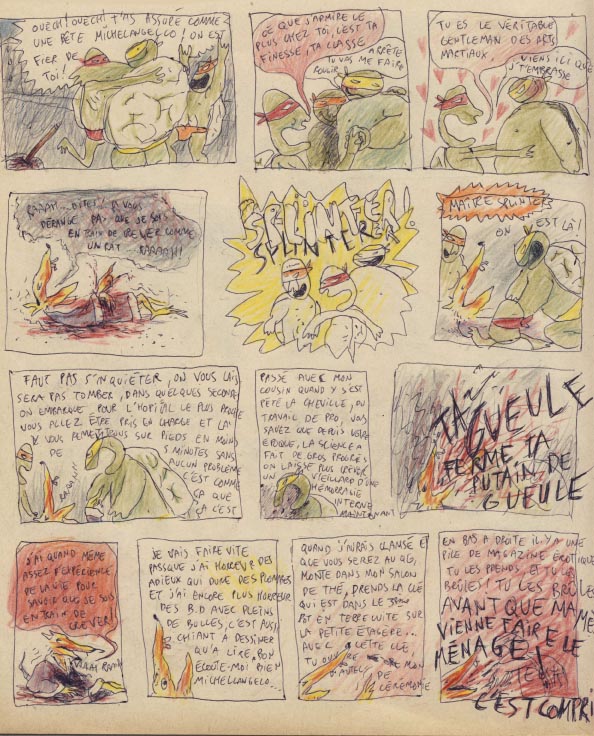 OUECH! OUECH! T'AS ASSURÉ COMME
UNE BÊTE MICHELANGELO! ON EST
FIER DE
TOI!
CE QUE J'ADMIRE LE
PLUS CHEZ TOI, C'EST TA
FINESSE, TA CLASSE
ARRÊTE
TU VAS ME FAIRE
ROUGIR
TU ES LE VÉRITABLE
GENTLEMAN DES ARTS
MARTIAUX
VIENS ICI QUE
J'T'EMBRASSE
RAAAH... DITES! SI VOUS
DÉRANGE PAS QUE JE SOIS
EN TRAIN DE CREVER COMME
UN RAT... RAAAAH!
SPLINTER!
SPLINTER!
MAITRE SPLINTER
ON EST LÀ!
FAUT PAS S'INQUIÉTER, ON VOUS LAIS
SERA PAS TOMBER, DANS QUELQUES SECONDES
ON EMBARQUE POUR L'HOPITAL LE PLUS PROCHE
VOUS ALLEZ ÊTRE PRIS EN CHARGE ET LÀ
VOUS REMETTENT SUR PIEDS EN MOINS
DE 5 MINUTES SANS
AUCUN PROBLÈME
C'EST COMME
ÇA QUE
ÇA C'EST
PASSÉ AVEC MON
COUSIN QUAND Y S'EST
PÉTÉ LA CHEVILLE, DU
TRAVAIL DE PRO, VOUS
SAVEZ QUE DEPUIS VOTRE
ÉPOQUE, LA SCIENCE A
FAIT DE GROS PROGRÈS
ON LAISSE PLUS CREVER
UN VIEILLARD D'UNE
HÉMORRAGIE
INTERNE
MAINTENANT
TA GUEULE
FERME TA
PUTAIN DE
GUEULE
J'AI QUAND MÊME
ASSEZ D'EXPÉRIENCE
DE LA VIE POUR
SAVOIR QUE JE SUIS
EN TRAIN DE
CREVER!
JE VAIS FAIRE VITE
PASQUE J'AI HORREUR DES
ADIEUX QUI DURE DES PLOMBES
ET J'AI ENCORE PLUS HORREUR
DES B.D AVEC PLEINS
DE BULLES, C'EST AUSSI
CHIANT À DESSINER
QU'A LIRE, BON
ÉCOUTE-MOI BIEN
MICHELLANGELO...
QUAND J'AURAIS CLAMSÉ ET
QUE VOUS SEREZ AU QG,
MONTE DANS MON SALON
DE THÉ, PRENDS LA CLÉ
QUI EST DANS LE
POT EN TERRE CUITE SUR
LA PETITE ÉTAGÈRE...
AVEC CETTE CLÉ,
TU OUVRE MON
D'AUTEL DE
CÉRÉMONIE
EN BAS À DROITE IL Y A UNE
PILE DE MAGAZINE ÉROTIQUE
TU LES PRENDS ET TU LES
BRÛLES! TU LES BRÛLES
AVANT QUE MA MÈRE
VIENNE FAIRE LE
MÉNAGE!
C'EST COMPRI